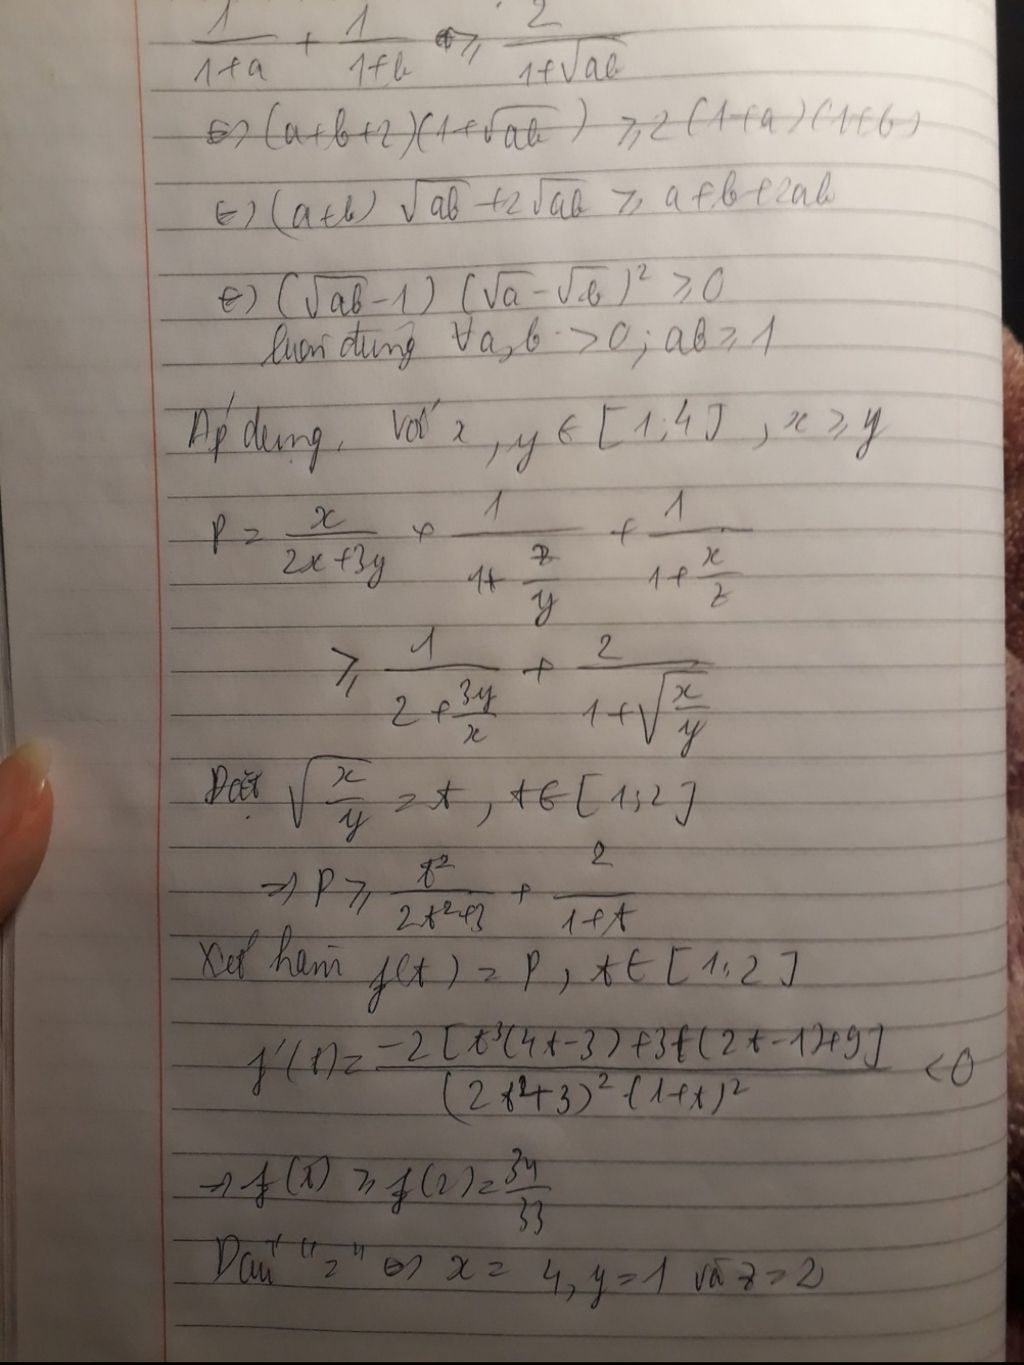 1/(1+a) + 1/(1+b) ≥ 2/(1+√ab)
⇔ (a+b+2)(1+√ab) ≥ 2(1+a)(1+b)
⇔ (a+b)√ab + 2√ab ≥ a+b+2ab
⇔ (√ab - 1)(√a - √b)² ≥ 0
luôn đúng ∀a,b > 0; ab ≥ 1
Áp dụng. Với x, y ∈ [1;4], x ≥ y
P = x/(2x+3y) + 1/(1+z/y) + 1/(1+x/z)
≥ 1/(2+3y/x) + 2/(1+√(x/y))
Đặt √(x/y) = t, t ∈ [1;2]
⇒ P ≥ t²/(2t²+3) + 2/(1+t)
Xét hàm f(t) = P, t ∈ [1;2]
f'(t) = -2[t³(4t-3)+3t(2t-1)+9]/((2t²+3)²(1+t)²) < 0
→ f(t) ≥ f(2) = 34/33
Dấu "=" ⇔ x = 4, y = 1 và z = 2